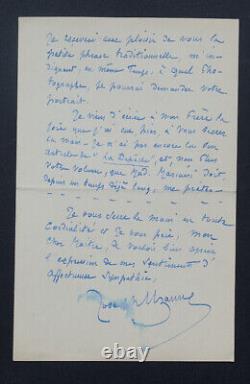 Je recevrai avec plaisir de vous la
petite phrase traditionnelle m'in
diquant, en même temps, à quel Pho-
tographe je pourrai demander votre
portrait.
Je viens d'écrire à mon Frère la
joie que j'ai eue hier à vous serrer
la main - Je n'ai pas encore lu son
article "La Dépêche", et non plus
votre volume, que Mad. Mariani doit,
depuis un temps déjà long, me prêter -
Je vous serre la main en toute
Cordialité et Je vous prie, mon
Cher Maître, de vouloir bien agréer
l'expression de mes Sentiments d'
affectueuse Sympathie,
Joseph Uzanne